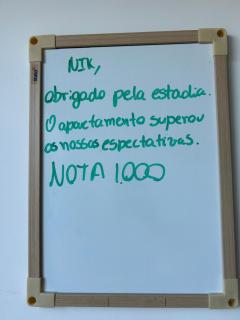 NIK,
obrigado pela estadia.
O apartamento superou
as nossas espectativas.
NOTA 1.000